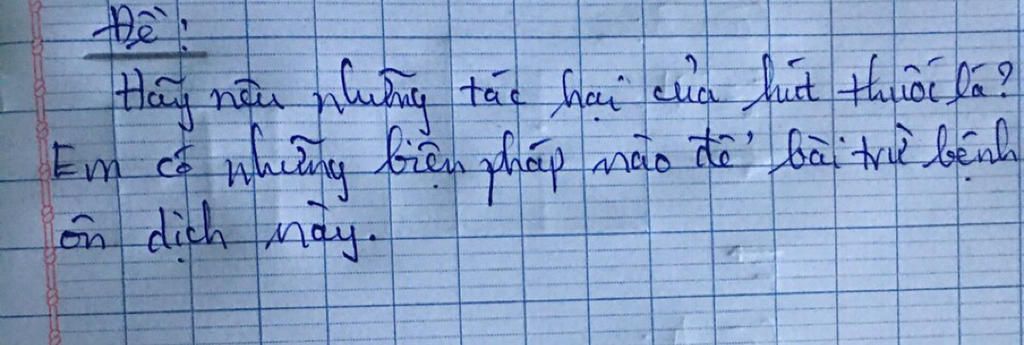 Đề:
Hãy nêu những tác hại của hút thuốc lá?
Em có những biện pháp nào để bài trừ bệnh
ôn dịch này.